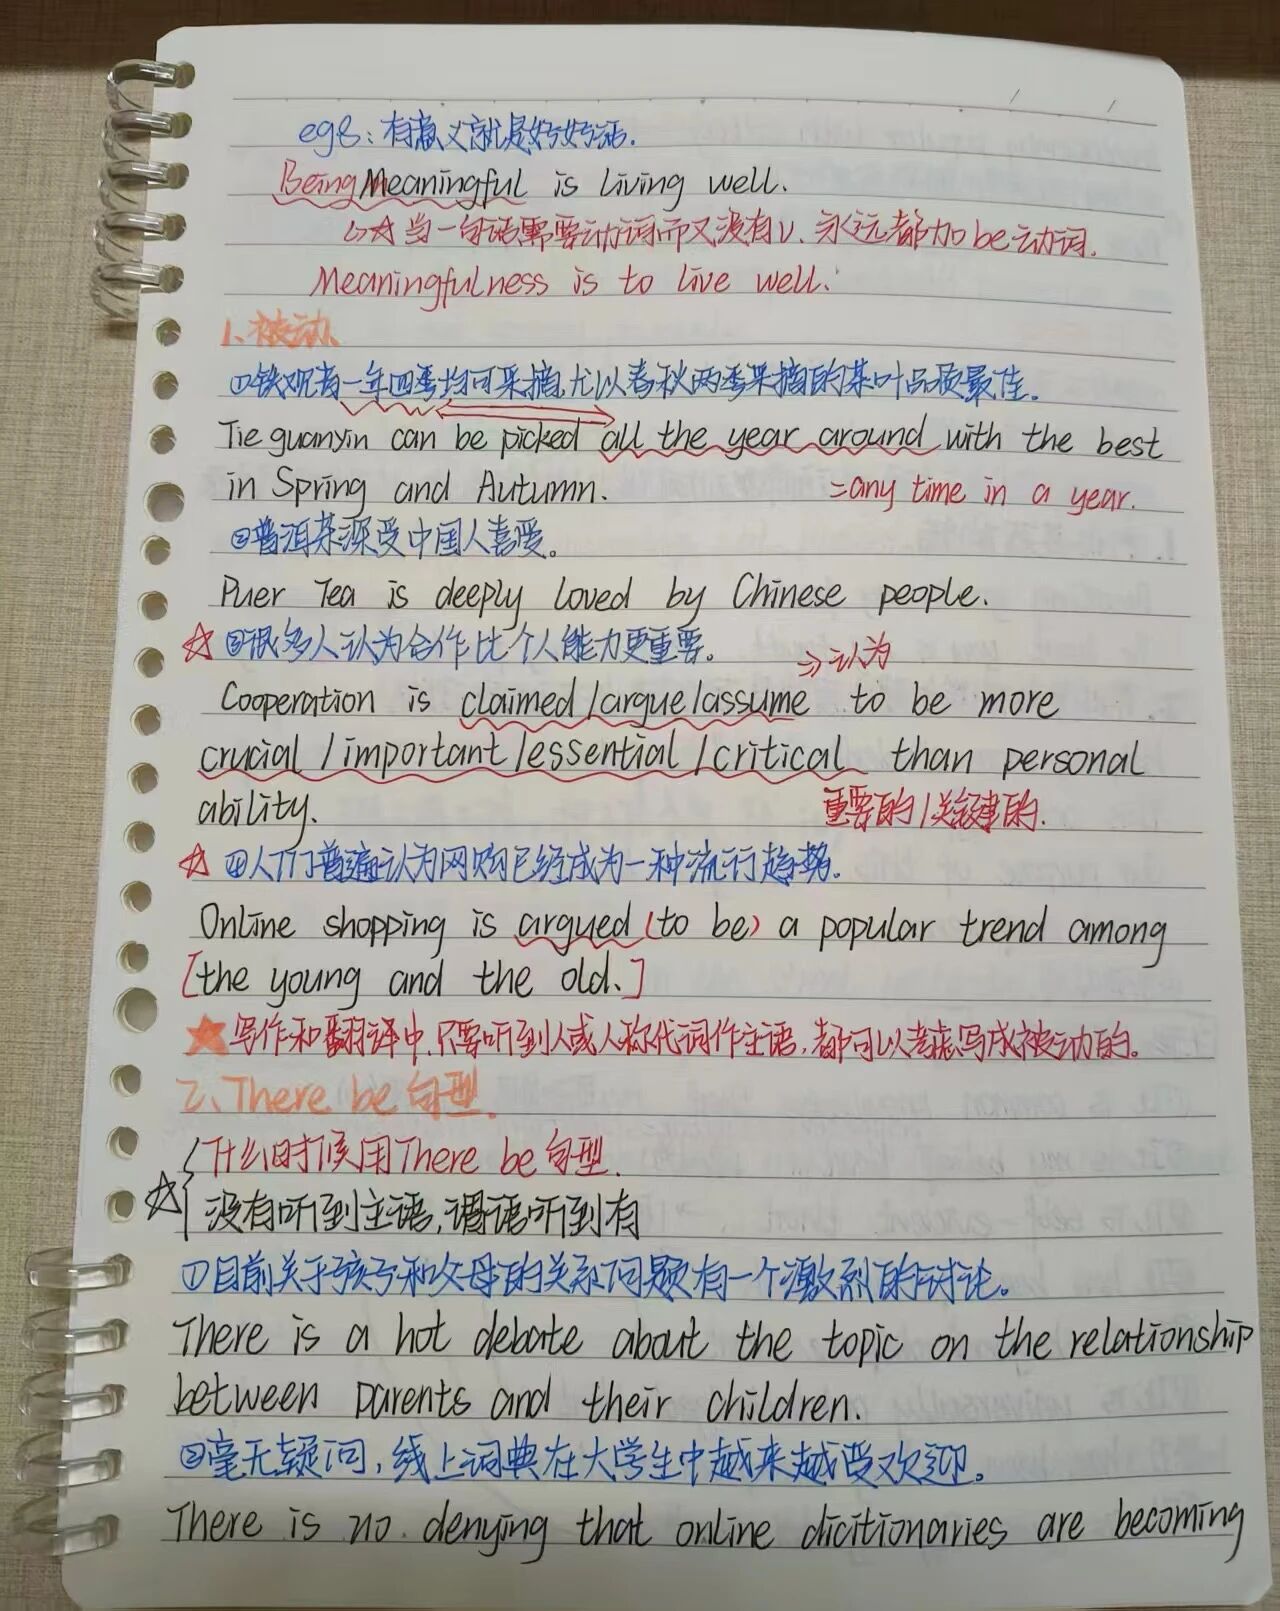 eg8:有意义就是好好活.
Being Meaningful is living well.
↳☆当一句话需要动词而又没有v.永远都加be动词.
Meaningfulness is to live well.
1.被动.
①铁观音一年四季均可采摘,尤以春秋两季采摘的茶叶品质最佳.
Tie guanyin can be picked all the year around with the best
in Spring and Autumn. =any time in a year.
②普洱茶深受中国人喜爱。
Puer Tea is deeply loved by Chinese people.
☆③很多人认为合作比个人能力更重要。 ⇒认为
Cooperation is claimed/argue/assume to be more
crucial/important/essential/critical than personal
ability. 重要的/关键的.
☆④人们普遍认为网购已经成为一种流行趋势.
Online shopping is argued (to be) a popular trend among
[the young and the old.]
★写作和翻译中,只要听到人或人称代词作主语,都可以考虑写成被动的。
2.There be句型.
什么时候用There be句型.
☆没有听到主语,谓语听到有
①目前关于孩子和父母的关系问题有一个激烈的讨论。
There is a hot debate about the topic on the relationship
between parents and their children.
②毫无疑问,线上词典在大学生中越来越受欢迎。
There is no denying that online dicitionaries are becoming